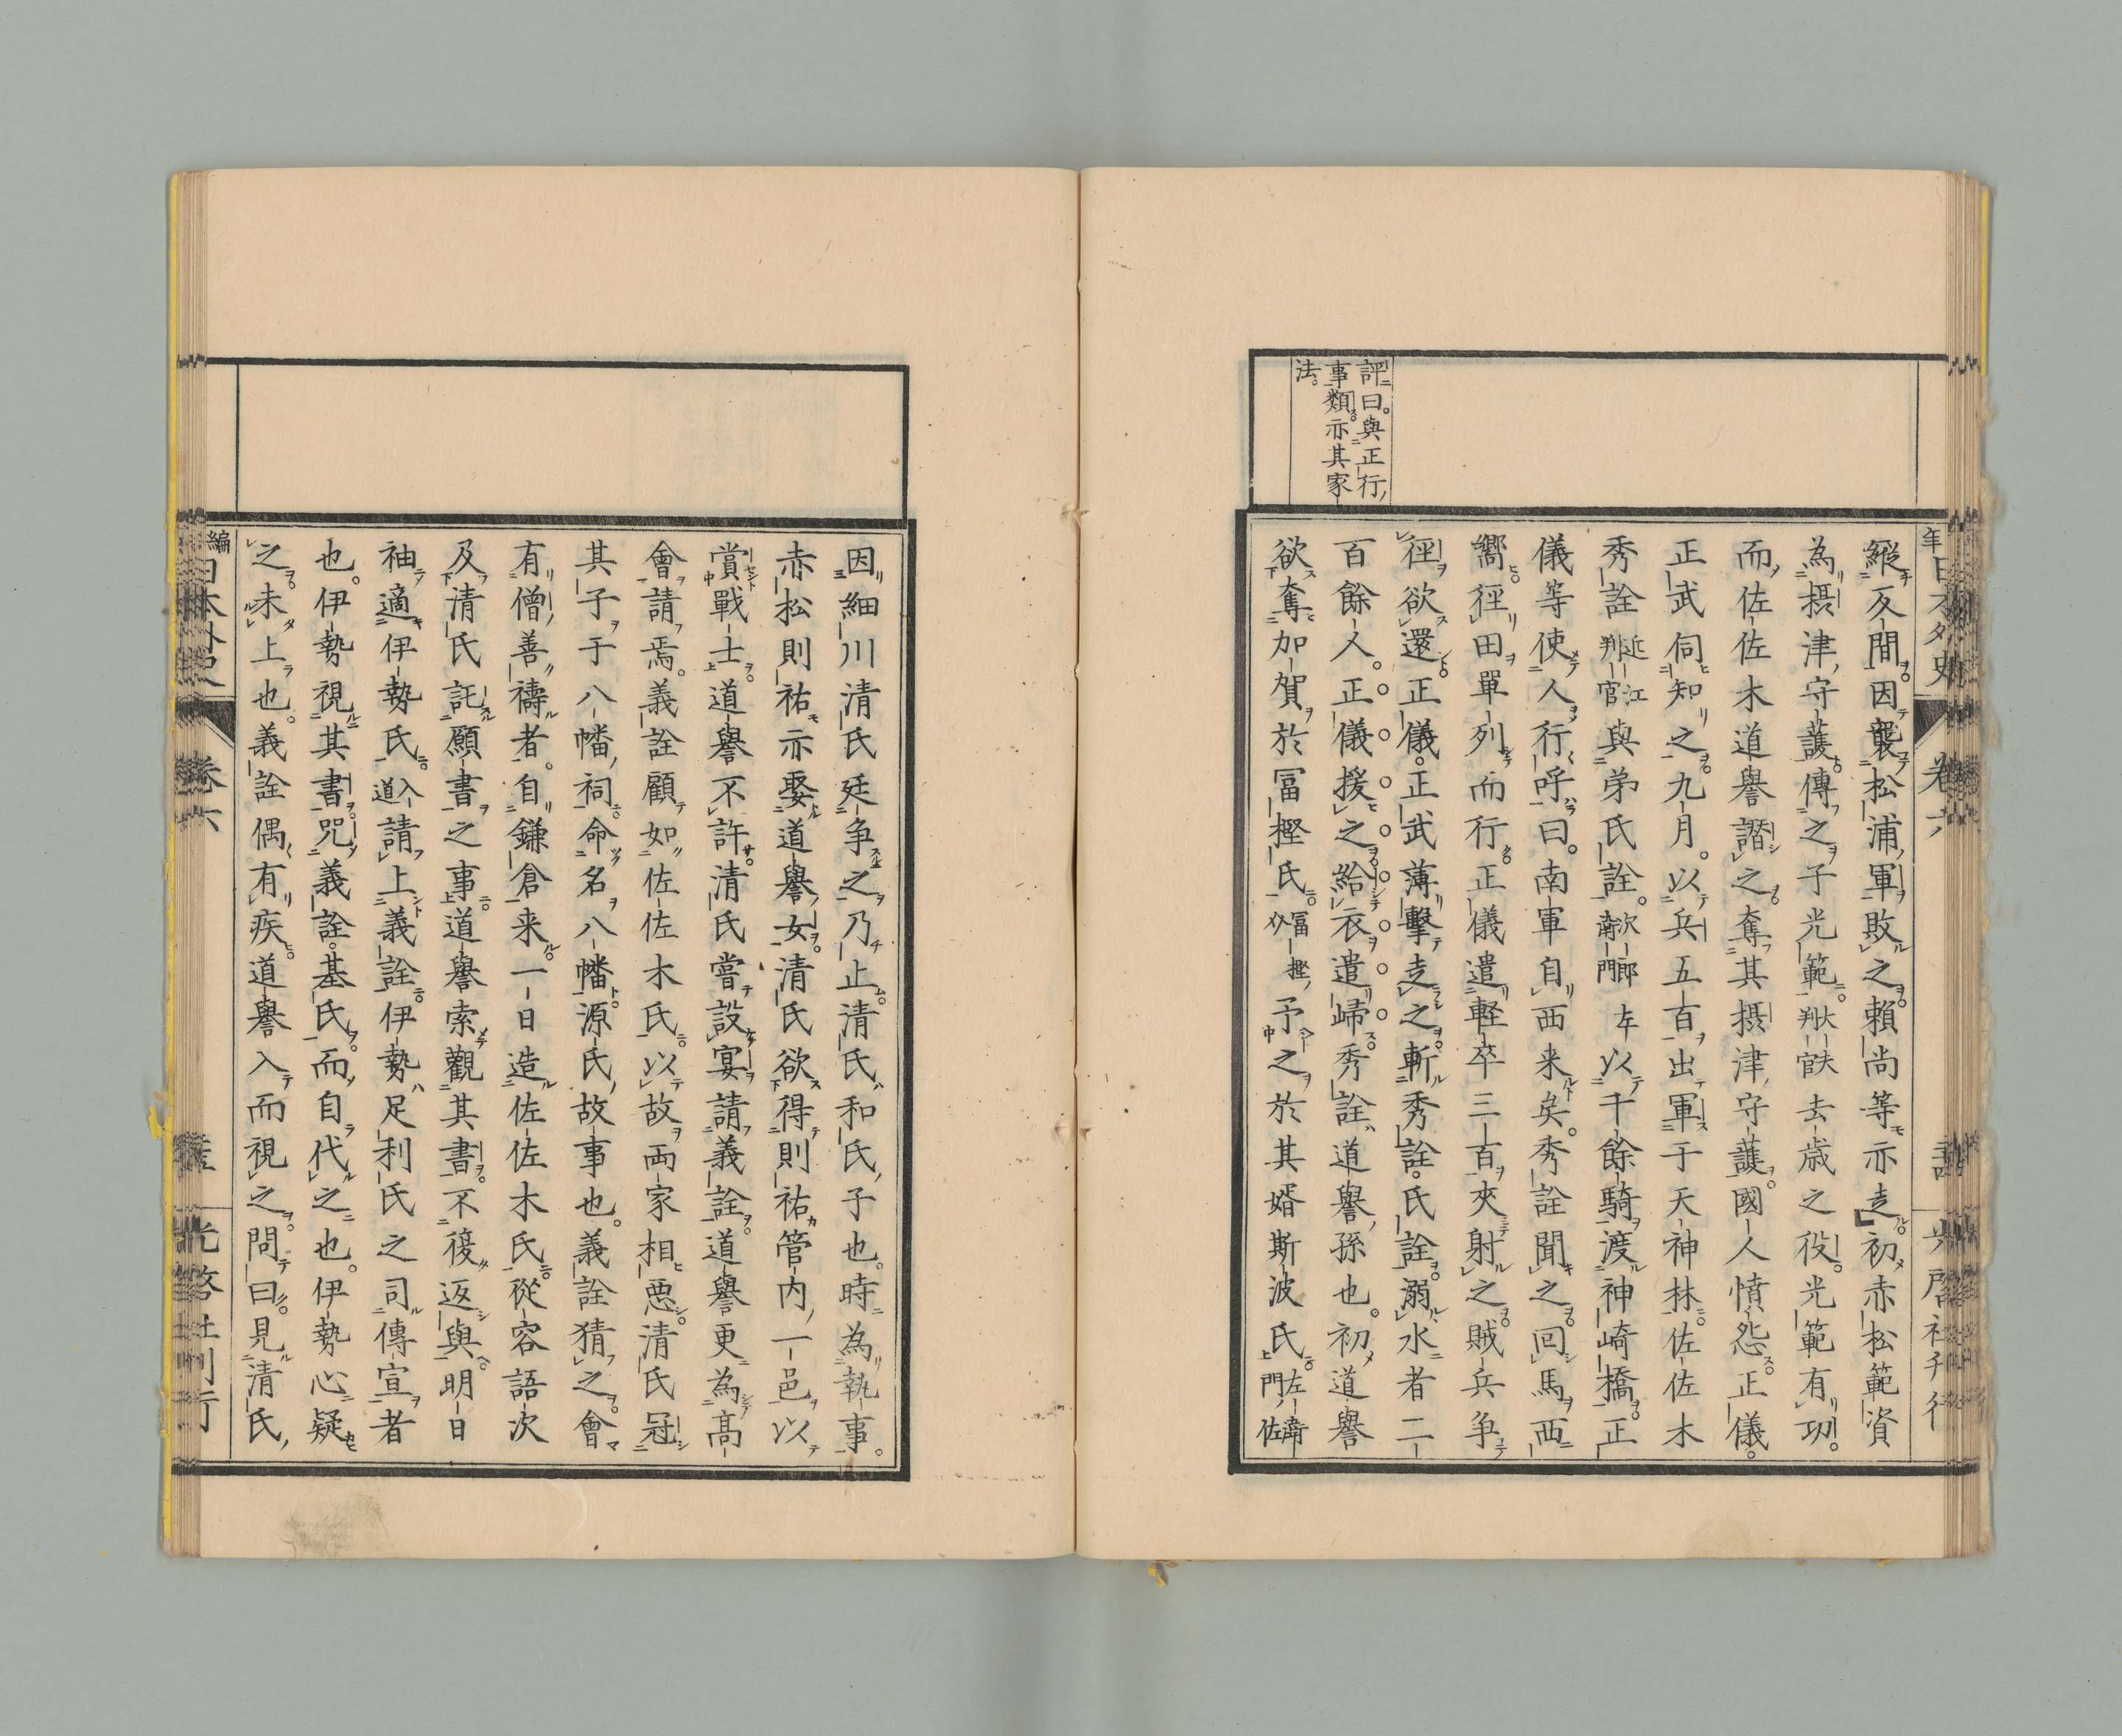 評曰。與正行、
事類。亦其家
法。
縱反間。因襲松浦、軍敗之。賴尚等亦走。』初赤松範資
為摂津、守護。傳之子光範。判官大夫去歳之役。光範有功。
而佐佐木道譽譖之。奪其摂津、守護。國人憤怨。正儀。
正武伺知之。九月。以兵五百出軍于天神林。佐佐木
秀詮近江判官與弟氏詮。次郎左衛門以千餘騎渡神崎橋。正
儀等使人行呼曰。南軍自西来矣。秀詮聞之。回馬西
嚮。徑田單列而行。正儀遣軽卒三百夾射之。賊兵争
徑欲還。正儀。正武薄撃走之。斬秀詮。氏詮。溺水者二
百餘人。正儀援之。給衣遣歸。秀詮、道譽、孫也。初道譽
欲奪加賀於冨樫氏。冨樫介、予之於其婿斯波氏。左衛門、佐
因細川清氏廷争之乃止。清氏、和氏、子也。時為執事。
赤松則祐亦娶道譽女。清氏欲得則祐管内、一邑以
賞戰士。道譽不許。清氏嘗設宴請義詮。道譽更為髙
會請焉。義詮顧如佐佐木氏。以故兩家相惡。清氏冠
其子于八幡、祠。命名八幡。源氏、故事也。義詮猜之。會
有僧、善禱者。自鎌倉来。一日造佐佐木氏。從容語次
及清氏託願書之事。道譽索觀其書。不復返與。明日
袖適伊勢氏。入道請上義詮。伊勢足利氏之司傳宣者
也。伊勢視其書。咒義詮。基氏。而自代之也。伊勢心疑
之。未上也。義詮偶有疾。道譽入而視之。問曰。見清氏、
卷六